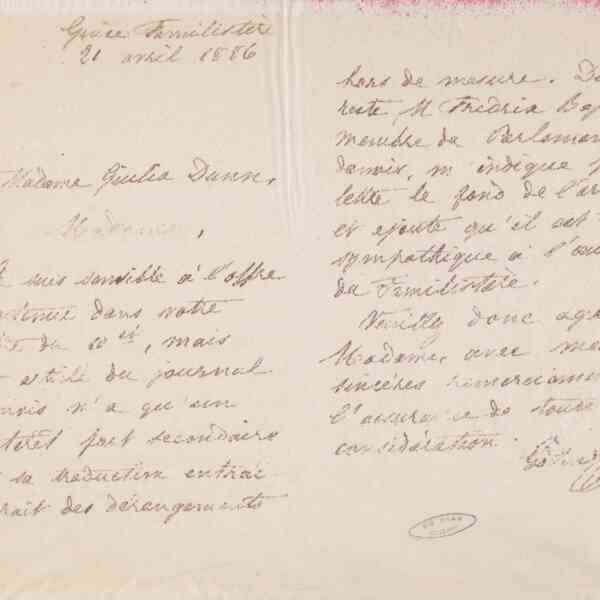 Guise Familistère
21 avril 1886
Madame Giulia Dunn,
Madame,
suis sensible à l'offre
tenue dans votre
du 20 ct, mais
article du journal
nois n'a qu'un
térêt fort secondaire
sa traduction entraî
rait des dérangements
hors de mesure. Du
reste, M Fredria Baj
membre du Parlemen
danois, m'indique
lettre le fond de l'ar
et ajoute qu'il est
sympathique à l'œu
du Familistère.
Veuillez donc agr
Madame, avec me
sincères remercieme
l'assurance de toute
considération.
Godin